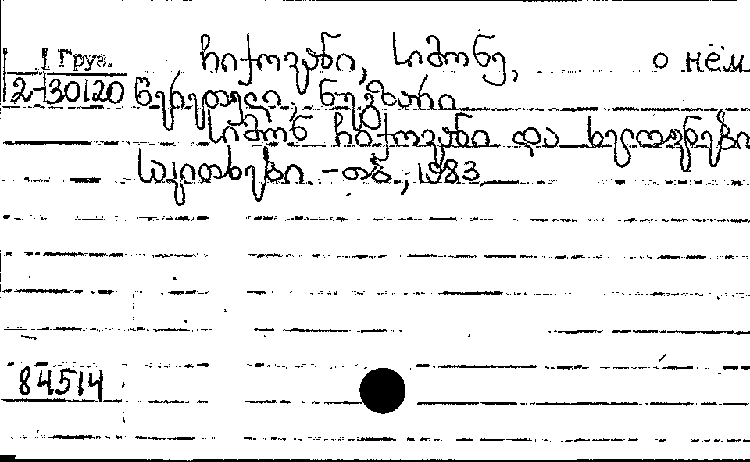 Груз. ჩიქოვანი, სიმონე, о нём
2-30120 წერეთელი, ნუგზარი
სიმონ ჩიქოვანი და ხელოვნების
საკითხები - თბ., 1983
84514